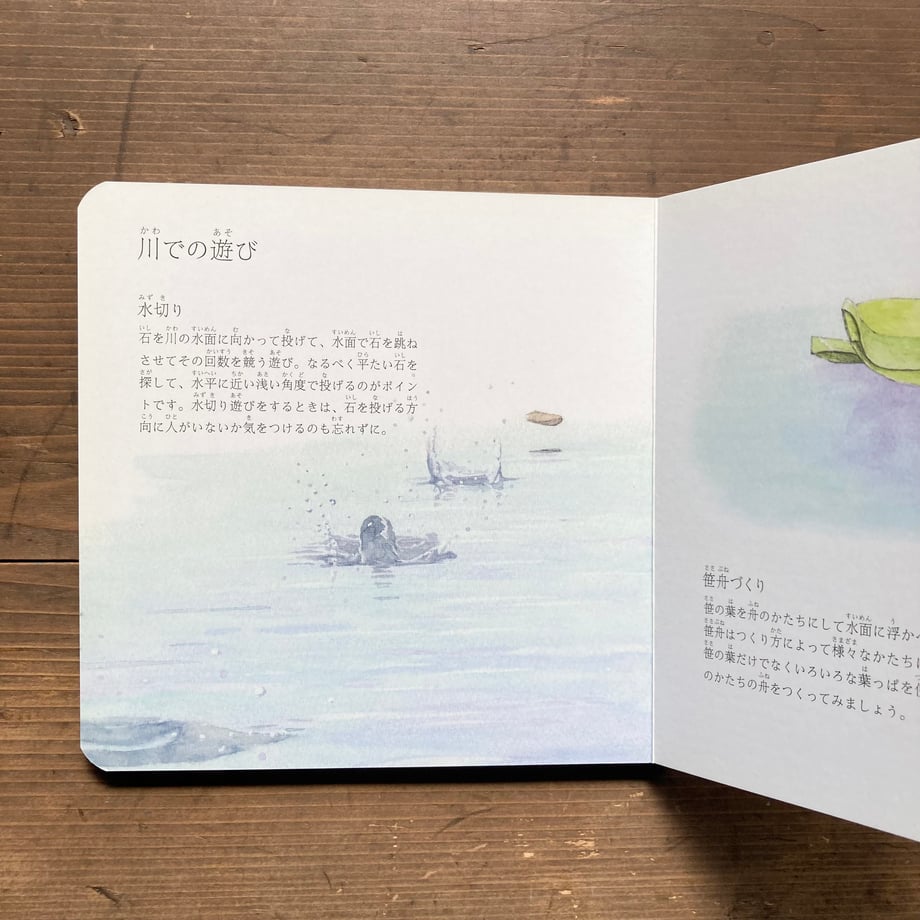 川での遊び
水切り
石を川の水面に向かって投げて、水面で石を跳ね
させてその回数を競う遊び。なるべく平たい石を
探して、水平に近い浅い角度で投げるのがポイン
トです。水切り遊びをするときは、石を投げる方
向に人がいないか気をつけるのも忘れずに。
笹舟づくり
笹の葉を舟のかたちにして水面に浮か
笹舟はつくり方によって様々なかたちに
笹の葉だけでなくいろいろな葉っぱを
のかたちの舟をつくってみましょう。